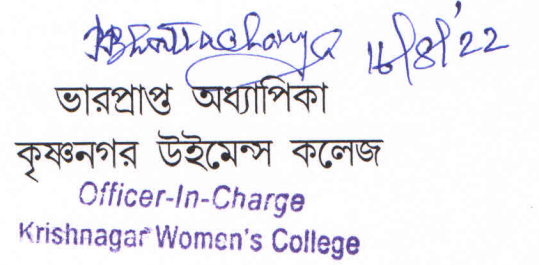 Bhattacharya 16/8/'22
ভারপ্রাপ্ত অধ্যাপিকা
কৃষ্ণনগর উইমেন্স কলেজ
Officer-In-Charge
Krishnagar Women's College